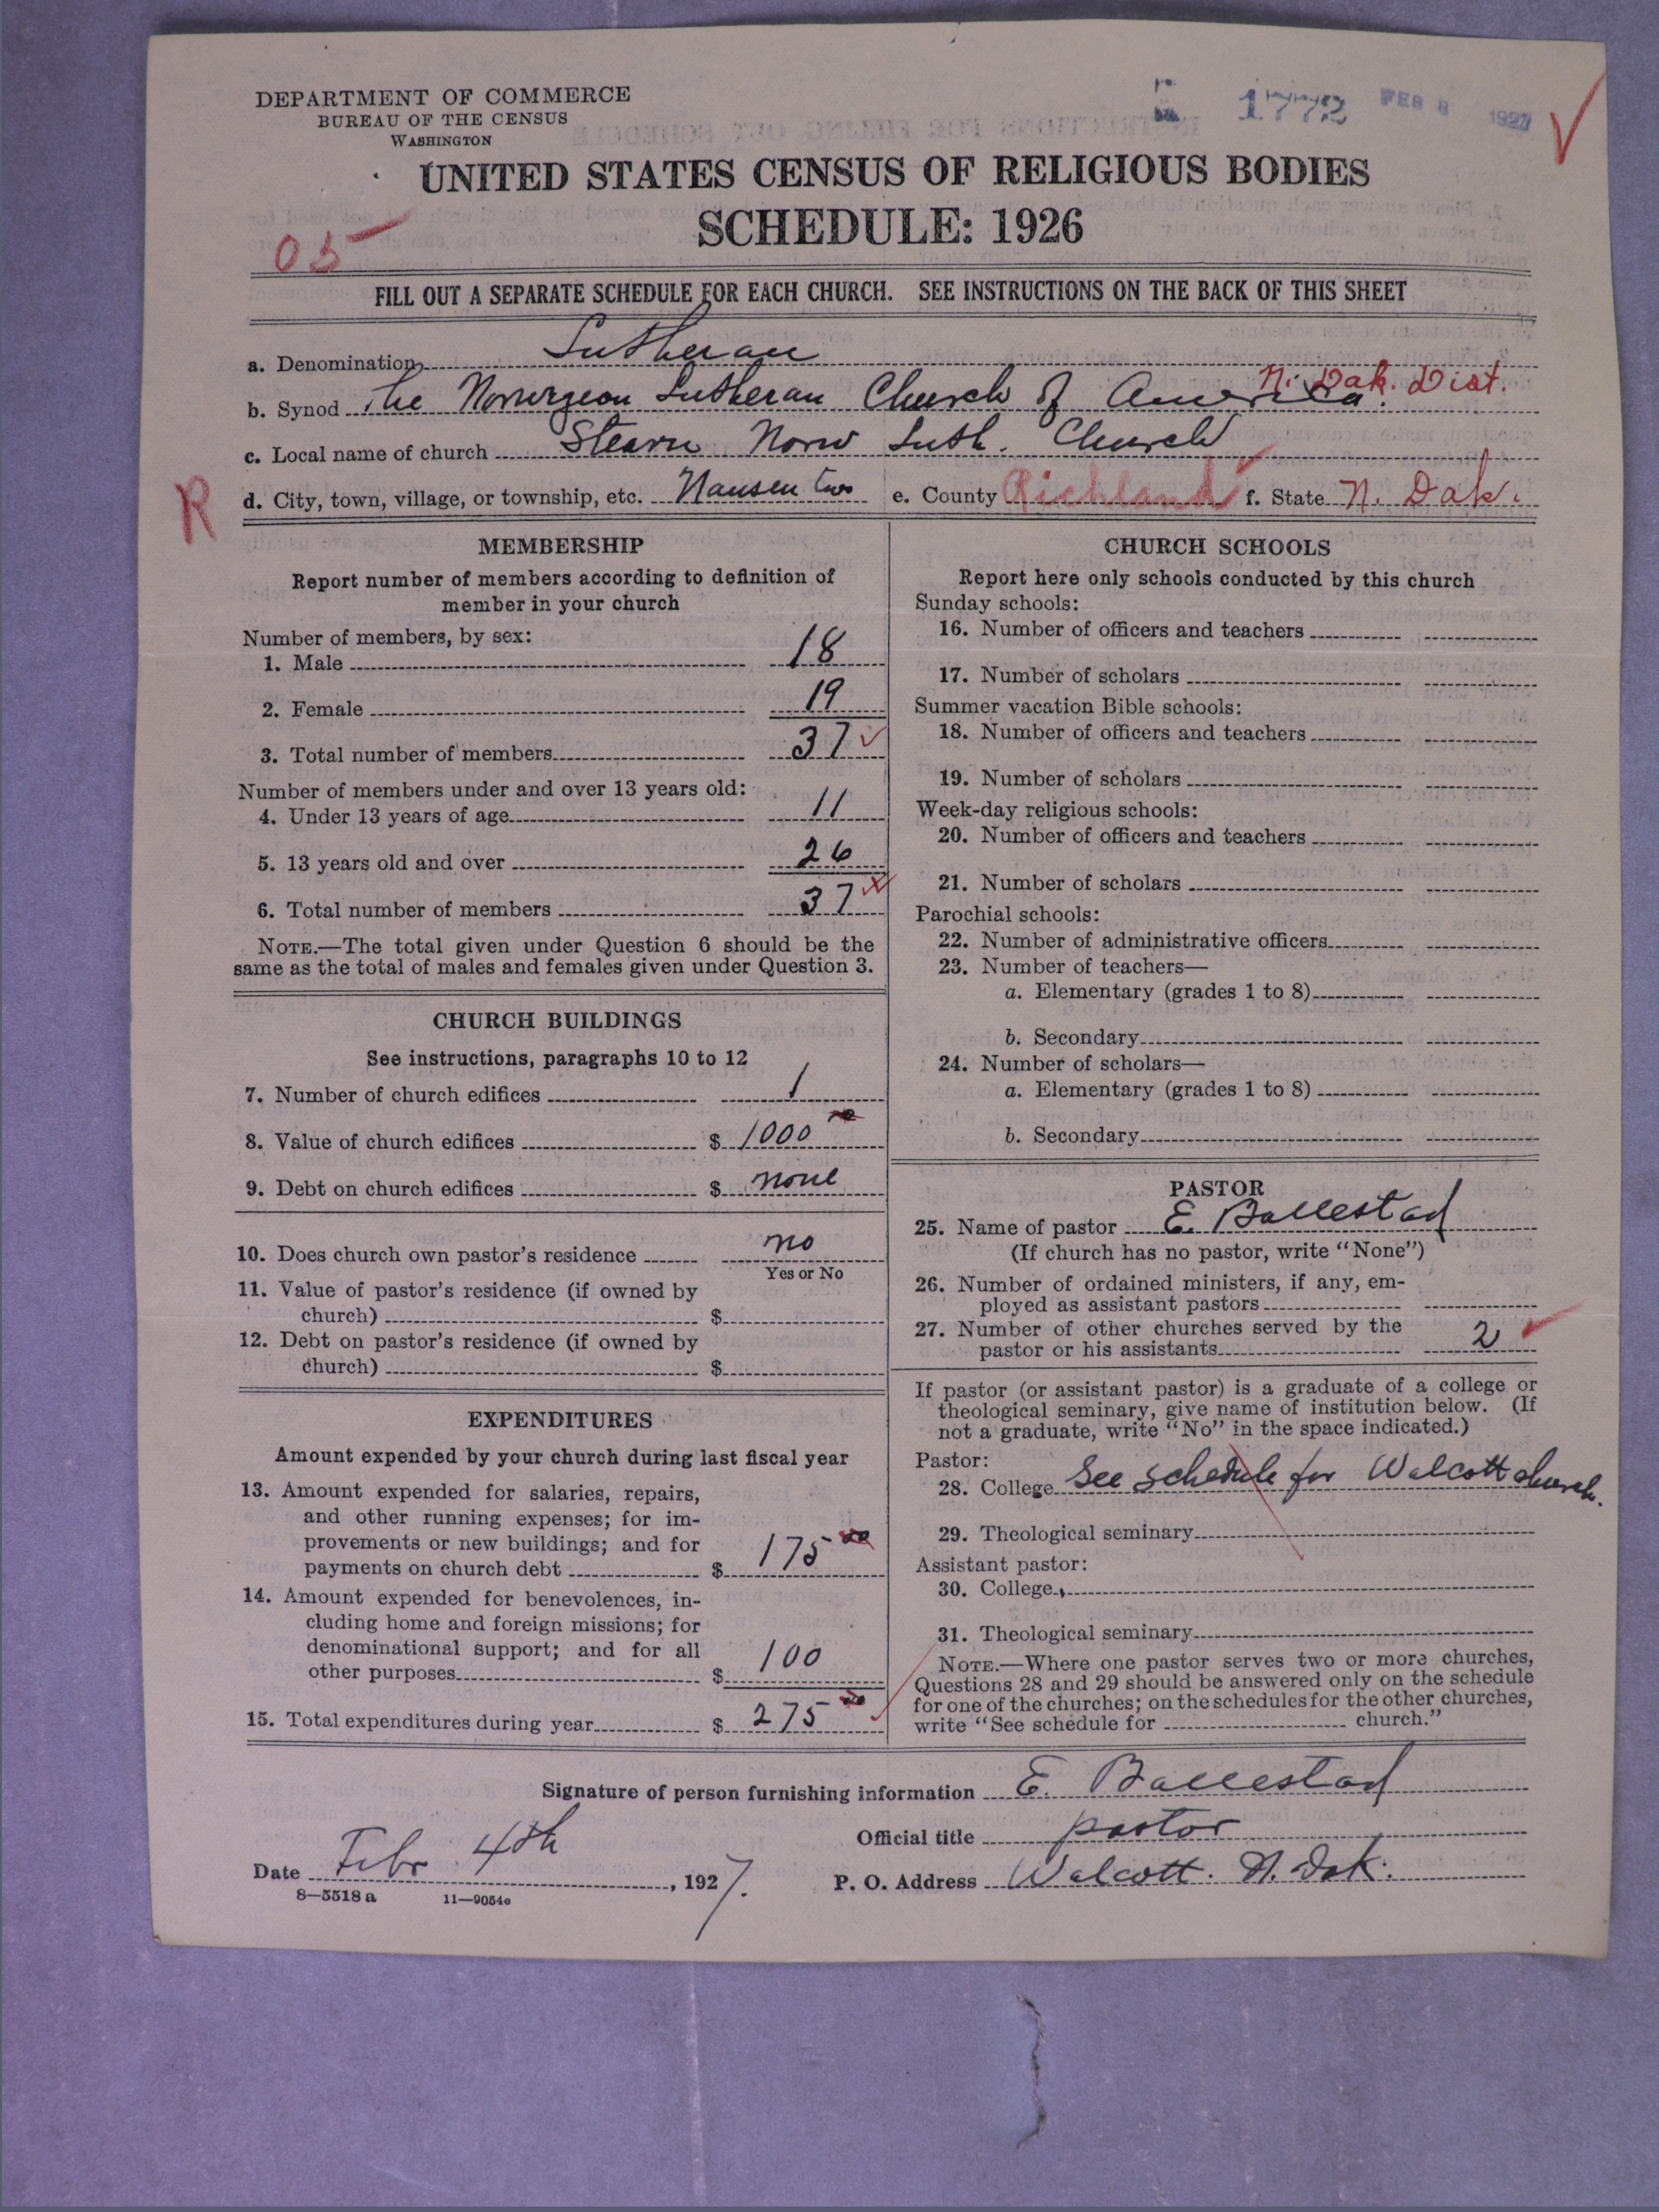 DEPARTMENT OF COMMERCE
BUREAU OF THE CENSUS
WASHINGTON
1772 FEB 8 1927
UNITED STATES CENSUS OF RELIGIOUS BODIES
SCHEDULE: 1926
05
FILL OUT A SEPARATE SCHEDULE FOR EACH CHURCH. SEE INSTRUCTIONS ON THE BACK OF THIS SHEET
a. Denomination Lutheran
b. Synod The Norwegeon Lutheran Church of America. N. Dak. Dist.
c. Local name of church Norw Luth. Church
R
d. City, town, village, or township, etc. e. County Richland f. State N. Dak.
MEMBERSHIP
Report number of members according to definition of
member in your church
Number of members, by sex:
1. Male 18
2. Female 19
3. Total number of members 37
Number of members under and over 13 years old:
4. Under 13 years of age 11
5. 13 years old and over 26
6. Total number of members 37
NOTE.—The total given under Question 6 should be the
same as the total of males and females given under Question 3.
CHURCH BUILDINGS
See instructions, paragraphs 10 to 12
7. Number of church edifices 1
8. Value of church edifices $ 1000
9. Debt on church edifices $ none
10. Does church own pastor's residence no
Yes or No
11. Value of pastor's residence (if owned by
church) $
12. Debt on pastor's residence (if owned by
church) $
EXPENDITURES
Amount expended by your church during last fiscal year
13. Amount expended for salaries, repairs,
and other running expenses; for im-
provements or new buildings; and for
payments on church debt $ 175
14. Amount expended for benevolences, in-
cluding home and foreign missions; for
denominational support; and for all
other purposes $ 100
15. Total expenditures during year $ 275
CHURCH SCHOOLS
Report here only schools conducted by this church
Sunday schools:
16. Number of officers and teachers
17. Number of scholars
Summer vacation Bible schools:
18. Number of officers and teachers
19. Number of scholars
Week-day religious schools:
20. Number of officers and teachers
21. Number of scholars
Parochial schools:
22. Number of administrative officers
23. Number of teachers—
a. Elementary (grades 1 to 8)
b. Secondary
24. Number of scholars—
a. Elementary (grades 1 to 8)
b. Secondary
PASTOR
25. Name of pastor E. Ballestad
(If church has no pastor, write "None")
26. Number of ordained ministers, if any, em-
ployed as assistant pastors
27. Number of other churches served by the
pastor or his assistants 2
If pastor (or assistant pastor) is a graduate of a college or
theological seminary, give name of institution below. (If
not a graduate, write "No" in the space indicated.)
Pastor:
28. College See schedule for Walcott church.
29. Theological seminary
Assistant pastor:
30. College
31. Theological seminary
NOTE.—Where one pastor serves two or more churches,
Questions 28 and 29 should be answered only on the schedule
for one of the churches; on the schedules for the other churches,
write "See schedule for church."
Signature of person furnishing information E. Ballestad
Official title pastor
Date Febr 4th, 1927.
P. O. Address Walcott. N. Dak.
8—5518 a 11—9054c